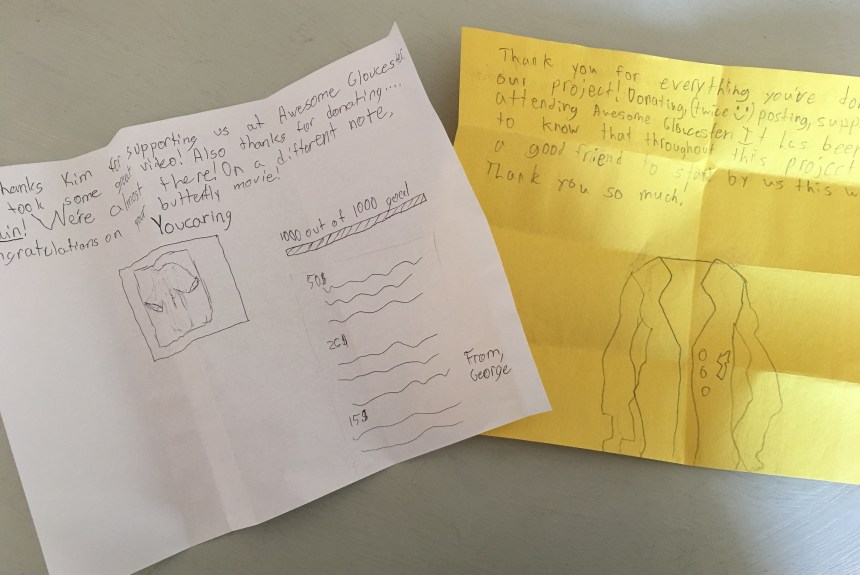 hanks Kim for supporting us at Awesome Gloucester
took some great video! Also thanks for donating....
ain! We're almost there! On a different note,
ngratulations on your butterfly movie!
Youcaring
1000 out of 1000 goal
50$
25$
15$
From,
George
Thank you for everything you've do
our project! Donating, (twice :)) posting, supp
attending Awesome Gloucester! It has bee
to know that throughout this project
a good friend to stand by us this w
Thank you so much!